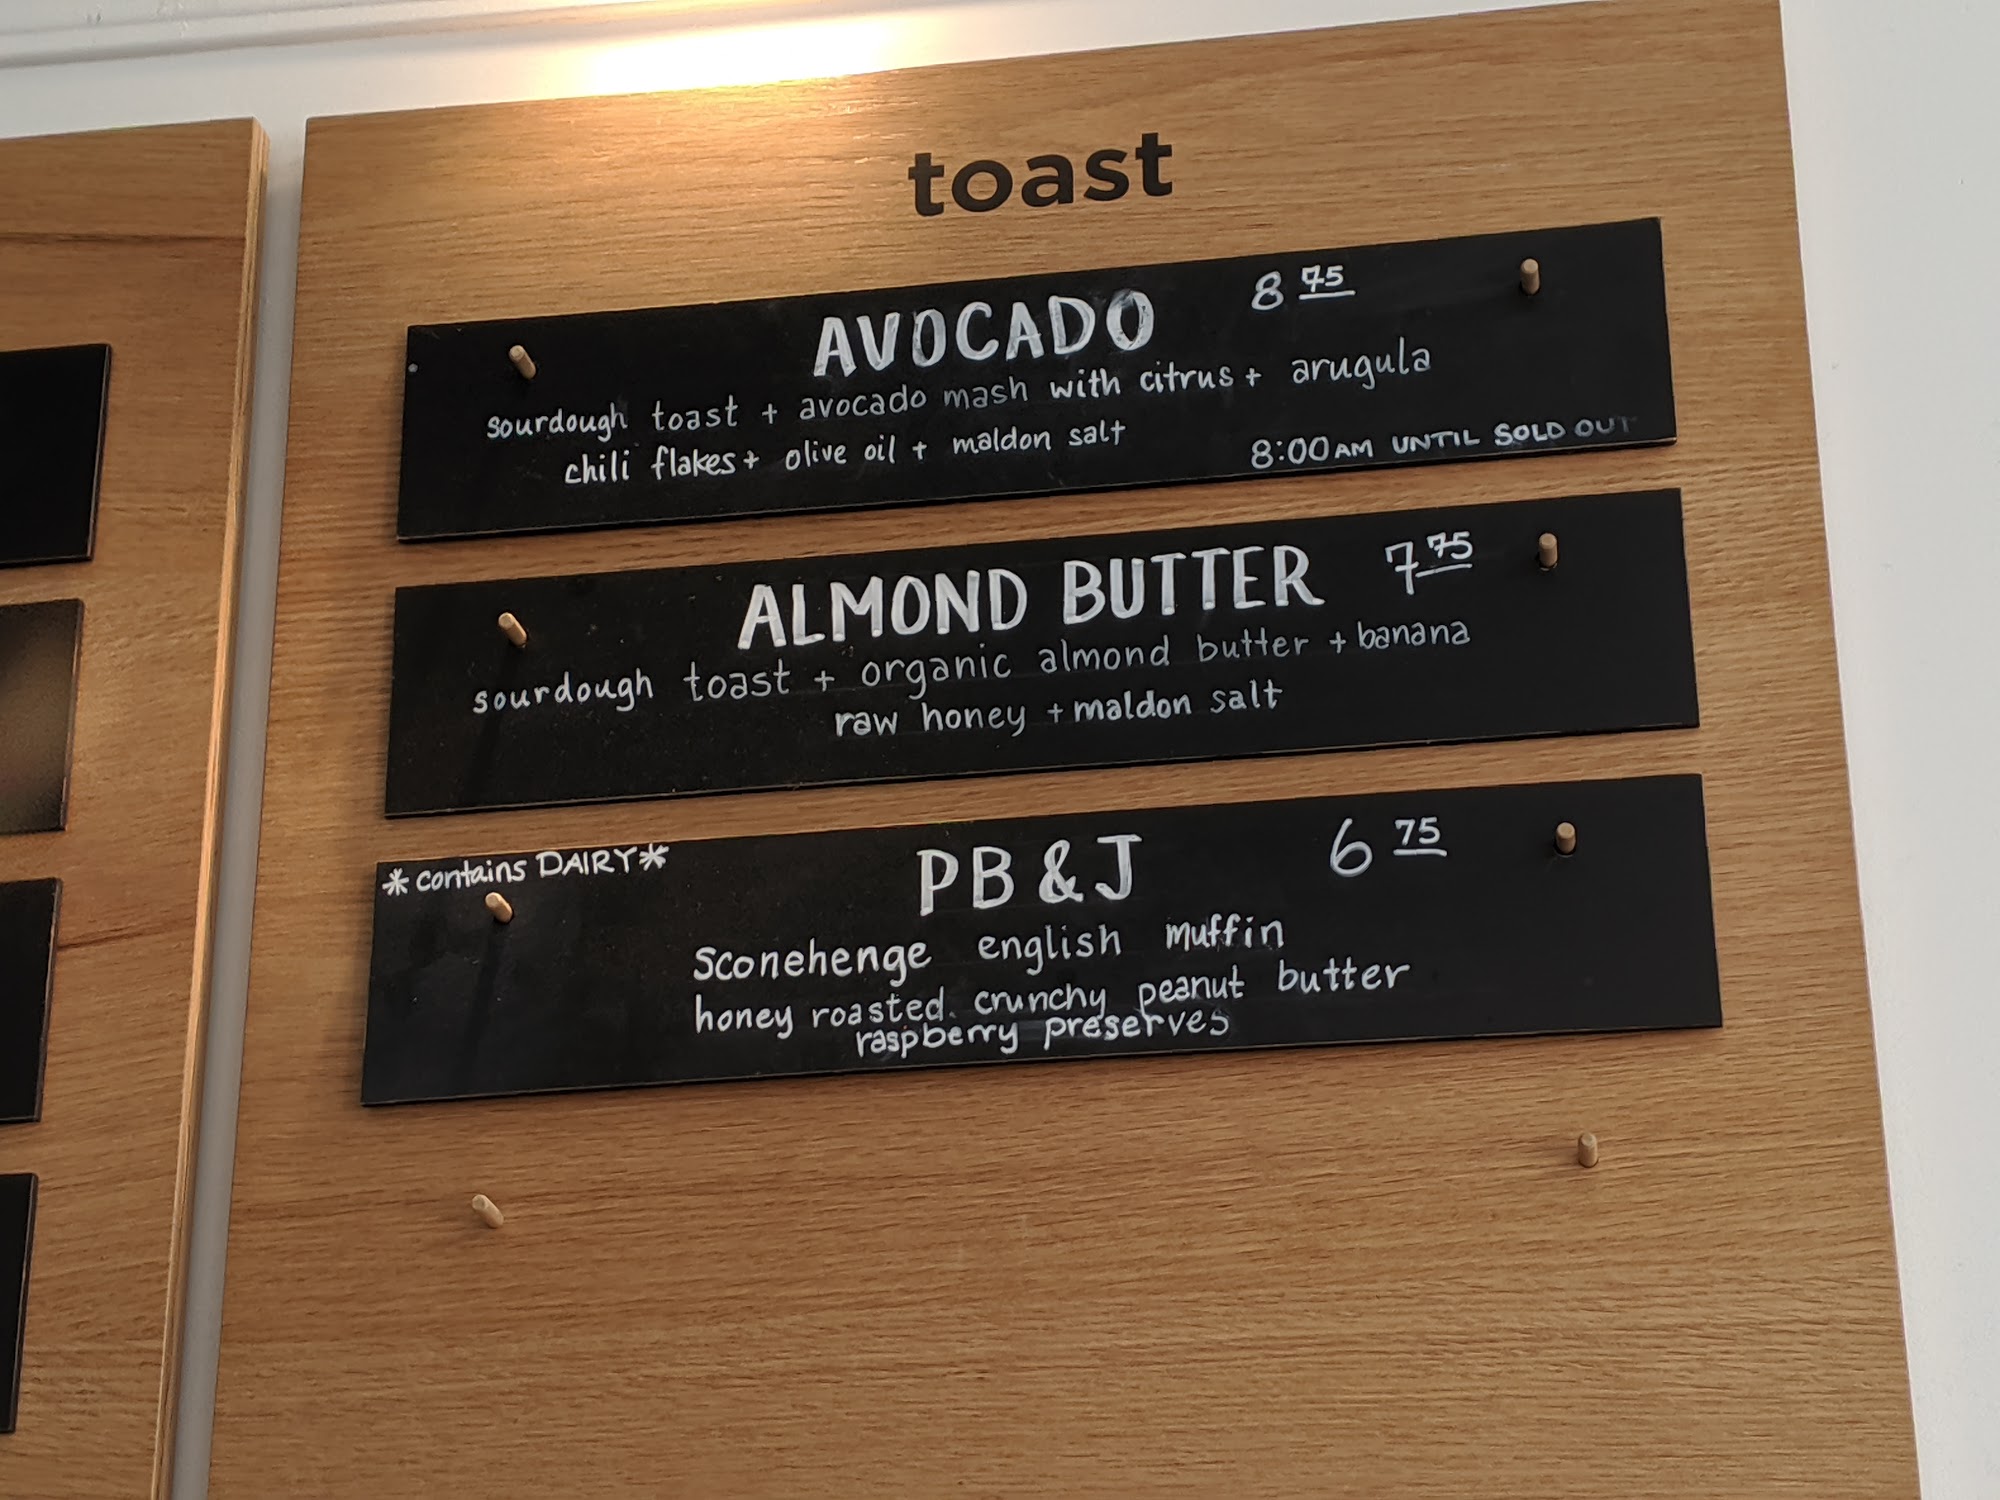 toast
AVOCADO 8 75
sourdough toast + avocado mash with citrus + arugula
chili flakes + olive oil + maldon salt
8:00AM UNTIL SOLD OUT
ALMOND BUTTER 7 75
sourdough toast + organic almond butter + banana
raw honey + maldon salt
*contains DAIRY*
PB & J 6 75
Sconehenge english muffin
honey roasted crunchy peanut butter
raspberry preserves